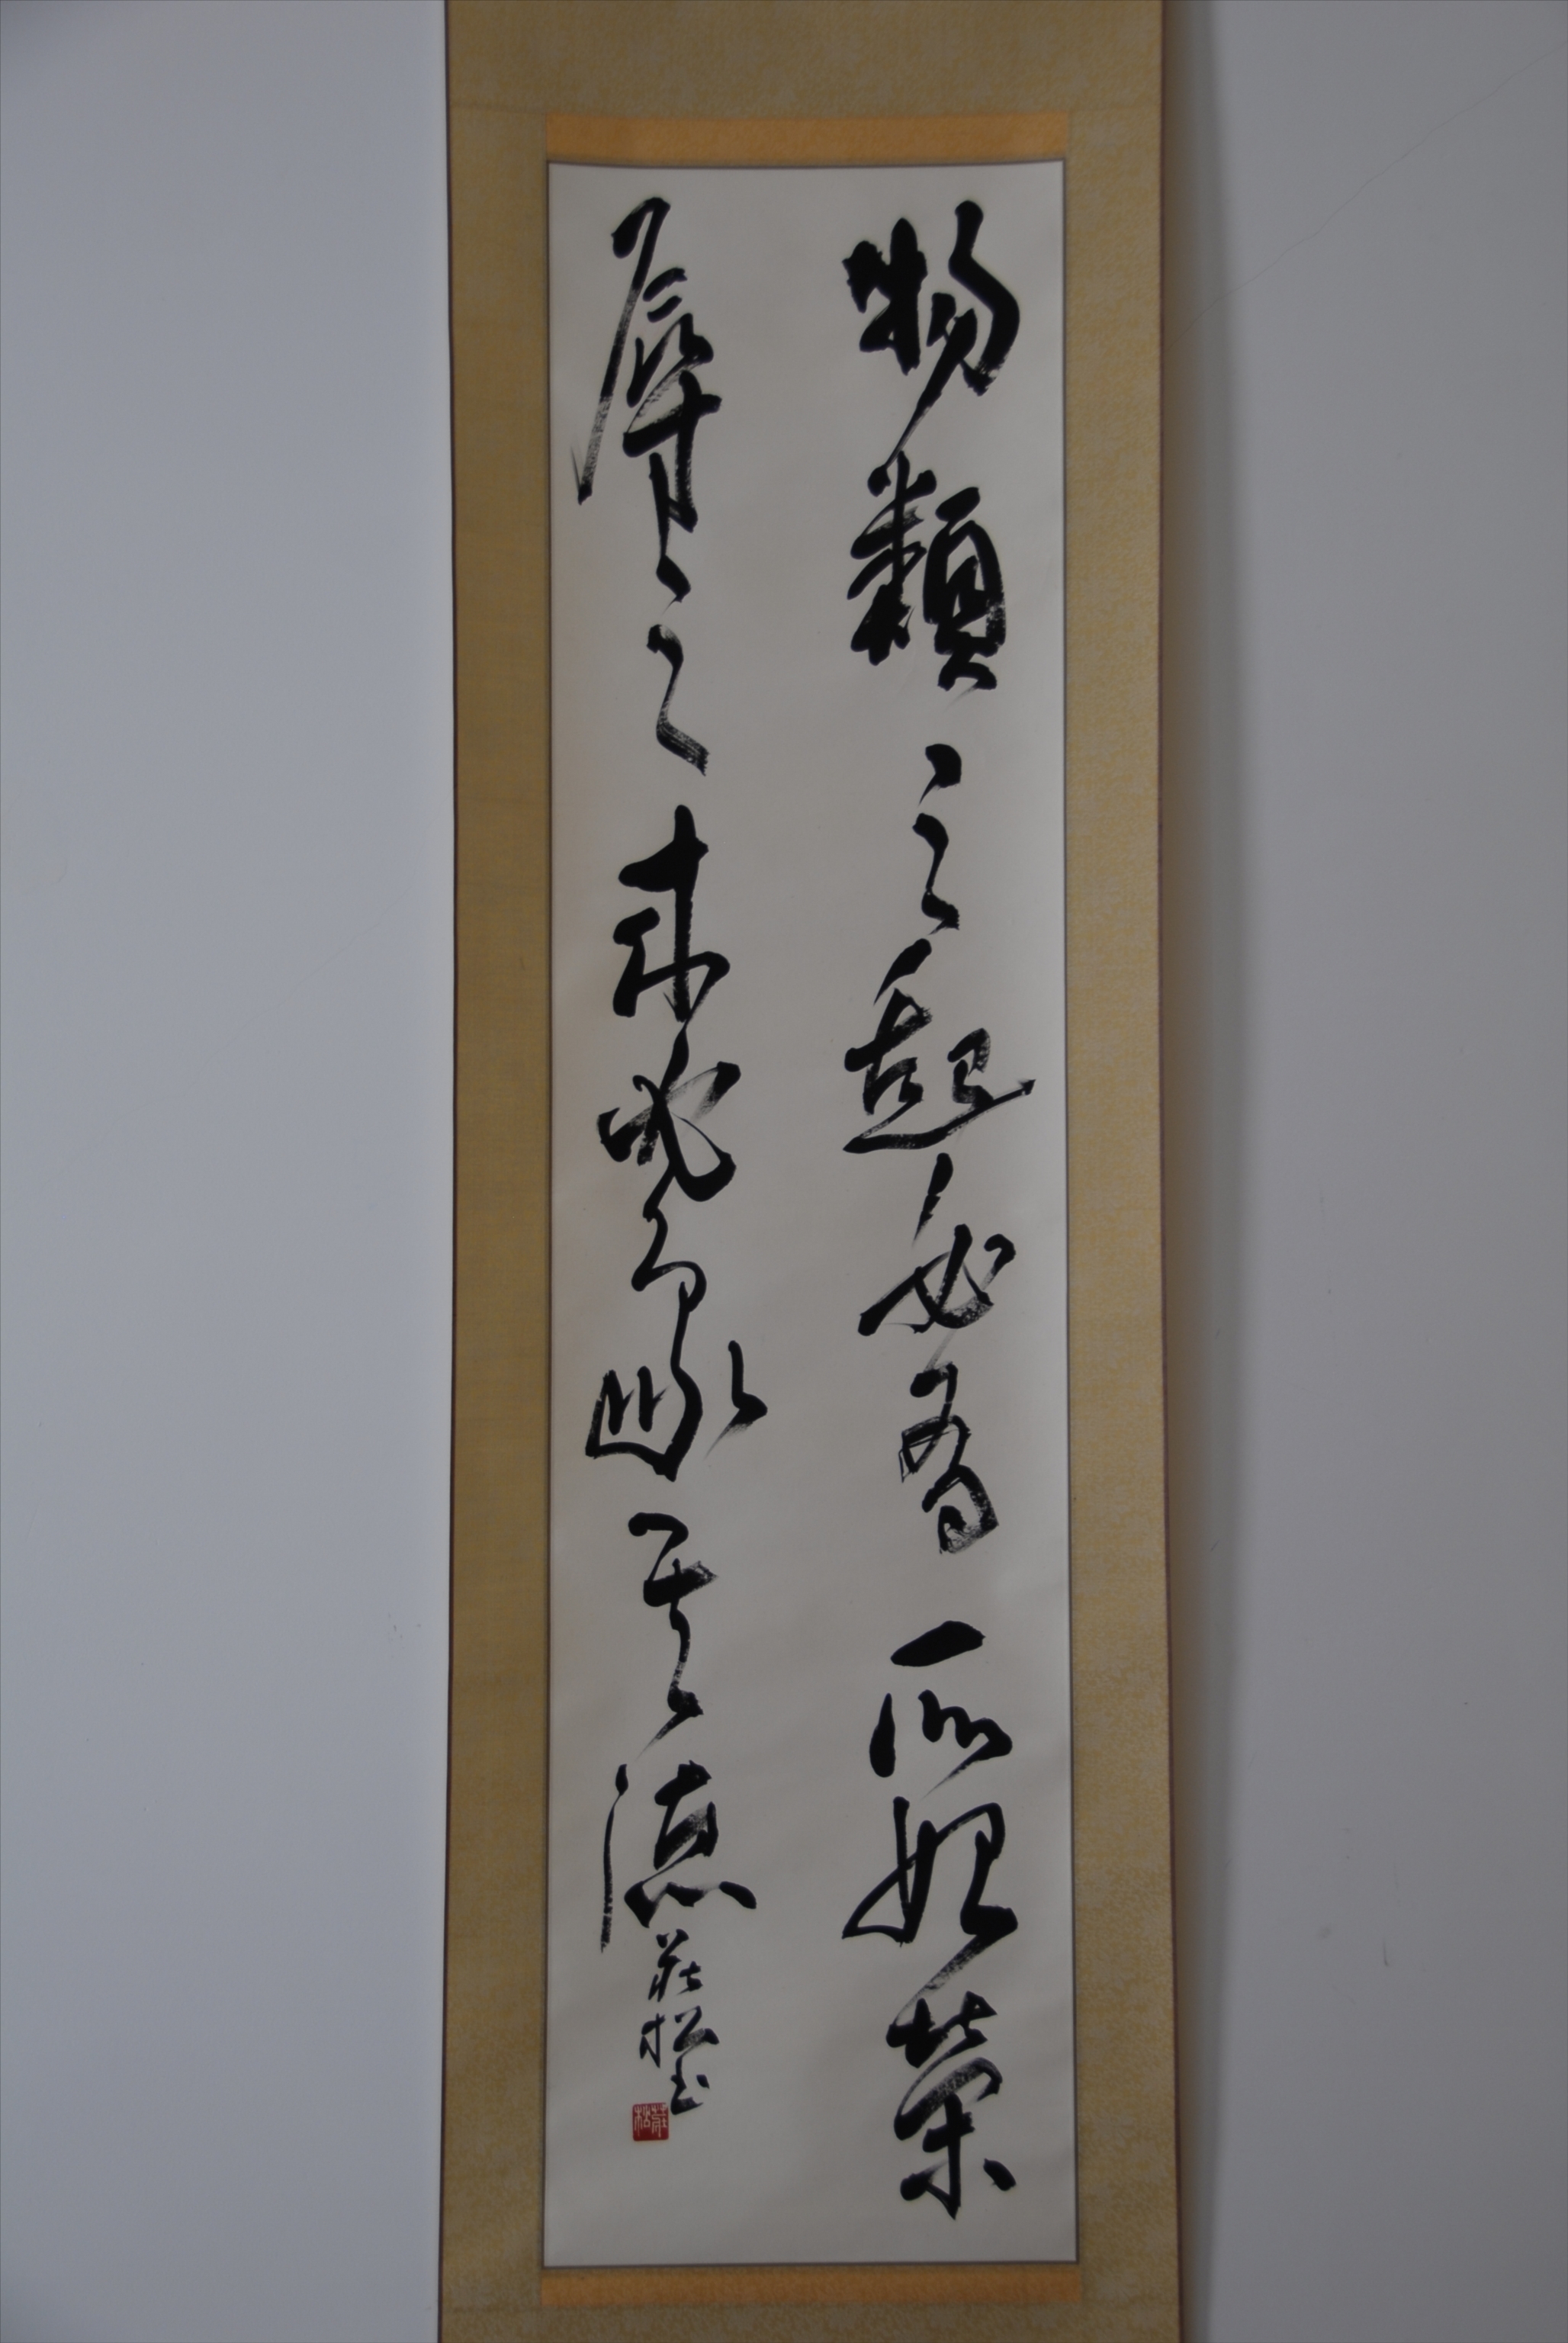 物類之起必有所始榮
辱之來必象其德
莊松